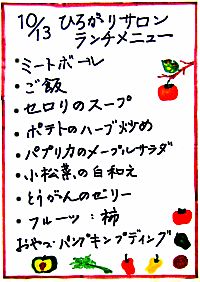 10/13 ひろがりサロン
ランチメニュー
・ミートボール
・ご飯
・セロリのスープ
・ポテトのハーブ炒め
・パプリカのメープルサラダ
・小松菜の白和え
・とうがんのゼリー
・フルーツ:柿
おやつ・パンプキンプディング